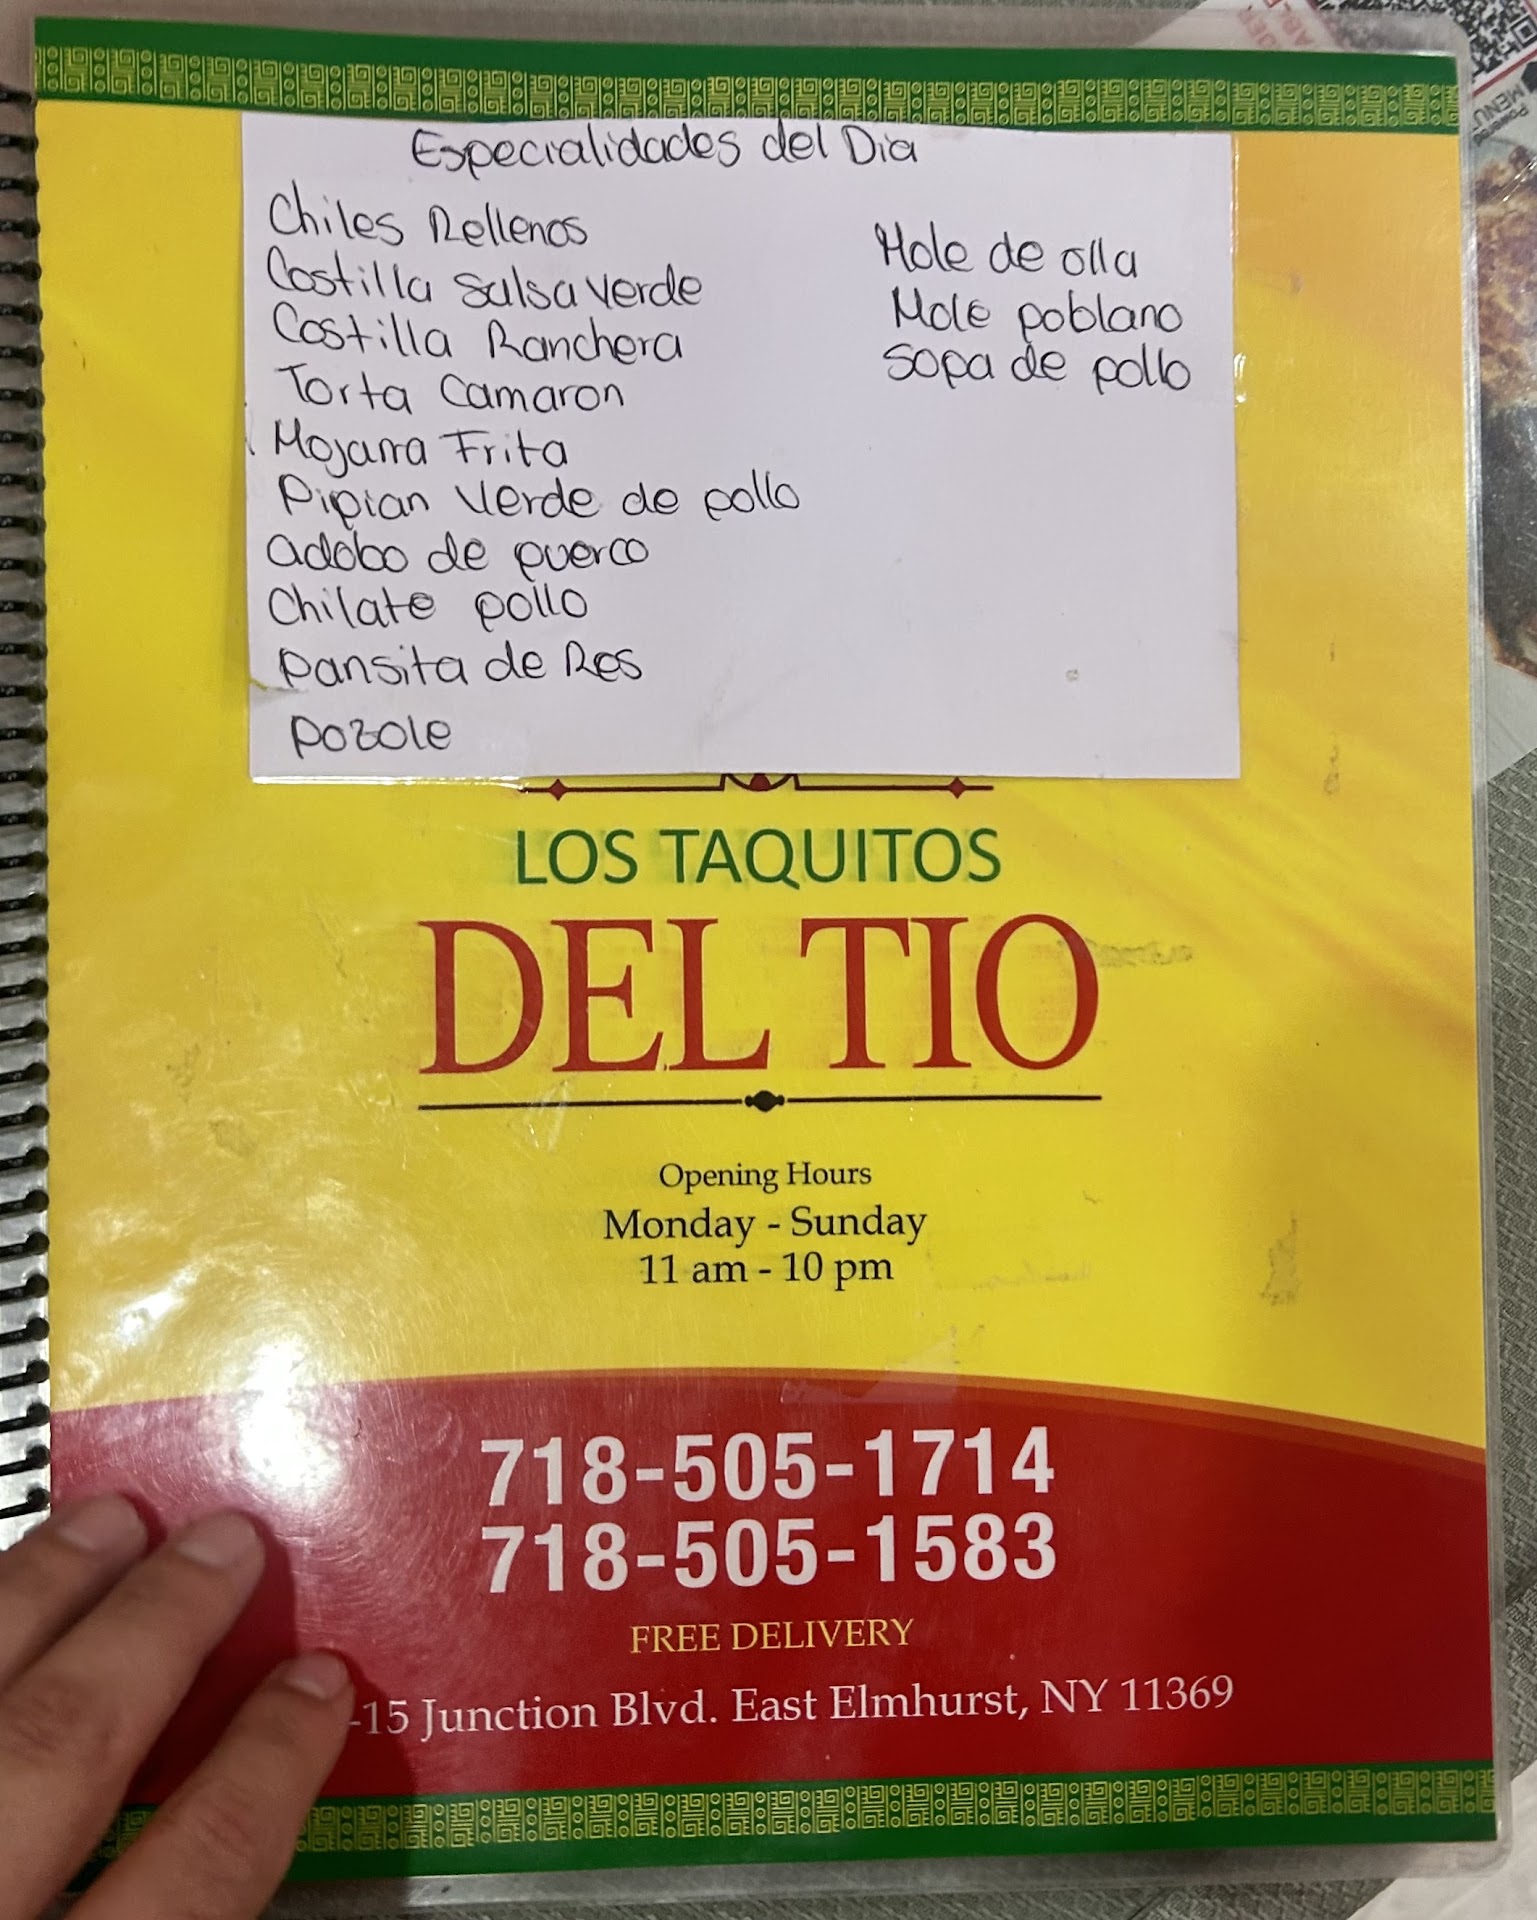 Especialidades del Dia
Chiles Rellenos
Costilla Salsa Verde
Costilla Ranchera
Torta Camaron
Mojarra Frita
Pipian Verde de pollo
adobo de puerco
Chilate pollo
pansita de Res
pozole
Mole de olla
Mole poblano
Sopa de pollo
LOS TAQUITOS
DEL TIO
Opening Hours
Monday - Sunday
11 am - 10 pm
718-505-1714
718-505-1583
FREE DELIVERY
-15 Junction Blvd. East Elmhurst, NY 11369
MENU